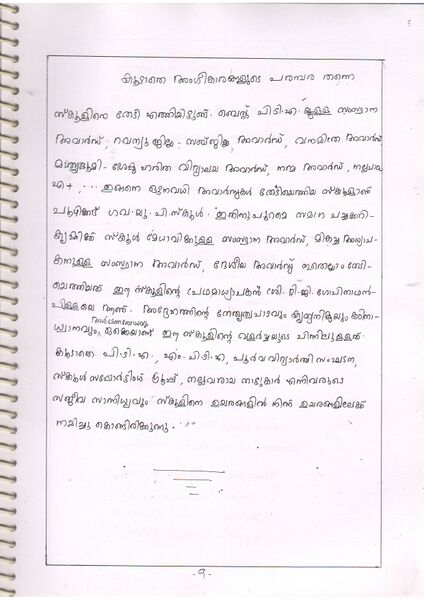 കൂടാതെ അംഗീകാരങ്ങളുടെ പരമ്പര തന്നെ
സ്കൂളിനെ തേടി എത്തിയിട്ടുണ്ട്. ബെസ്റ്റ് പി.ടി.എ.യ്ക്കുള്ള സംസ്ഥാന
അവാർഡ്, റവന്യൂ ജില്ലാ, സബ്ജില്ലാ അവാർഡ്, വനമിത്ര അവാർഡ്
മാതൃഭൂമി - ഹരിത വിദ്യാലയ അവാർഡ്, നന്മ അവാർഡ്, നല്ലപാഠം
എ+, ... ഇങ്ങനെ ഒട്ടനവധി അവാർഡുകൾ തേടിയെത്തിയ സ്കൂളാണ്
ഗവ. യു. പി. സ്കൂൾ. ഇതിനുപുറമെ സമഗ്ര പച്ചക്കറി-
കൃഷിക്ക് സ്കൂൾ മേധാവിക്കുള്ള സംസ്ഥാന അവാർഡ്, മികച്ച അധ്യാപ-
കനുള്ള സംസ്ഥാന അവാർഡ്, ദേശീയ അവാർഡ് ഇതെല്ലാം തേടി-
യെത്തിയത് ഈ സ്കൂളിന്റെ പ്രഥമാധ്യാപകൻ ശ്രീ. റ്റി. ജി. ഗോപിനാഥൻ-
പിള്ളയെ ആണ്. അദ്ദേഹത്തിന്റെ നേതൃത്വപാടവും കൃത്യനിഷ്ഠയും കഠിനാ-
ധ്വാനവും, ആത്മാർത്ഥതയുമൊക്കെയാണ് ഈ സ്കൂളിന്റെ വളർച്ചയുടെ പിന്നിലുള്ളത്
കൂടാതെ പി. ടി. എ, എം. പി. ടി. എ, പൂർവ വിദ്യാർത്ഥി സംഘടന,
സ്കൂൾ സപ്പോർട്ടിംഗ് ഗ്രൂപ്പ്, നല്ലവരായ നാട്ടുകാർ എന്നിവരുടെ
സജീവ സാന്നിധ്യവും സ്കൂളിനെ ഉയരങ്ങളിൽ നിന്ന് ഉയരങ്ങളിലേക്ക്
നയിച്ചു കൊണ്ടിരിക്കുന്നു.
-9-